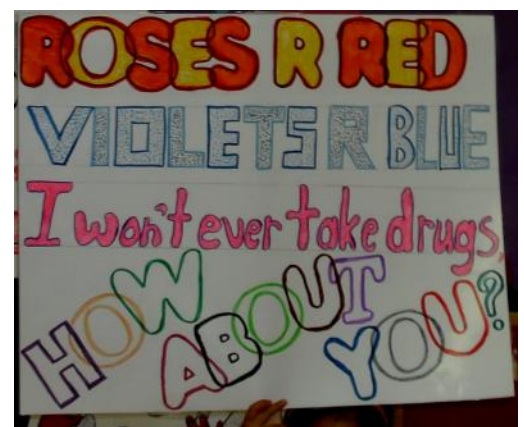 ROSES R RED
VIOLETS R BLUE
I won't ever take drugs,
HOW ABOUT YOU?